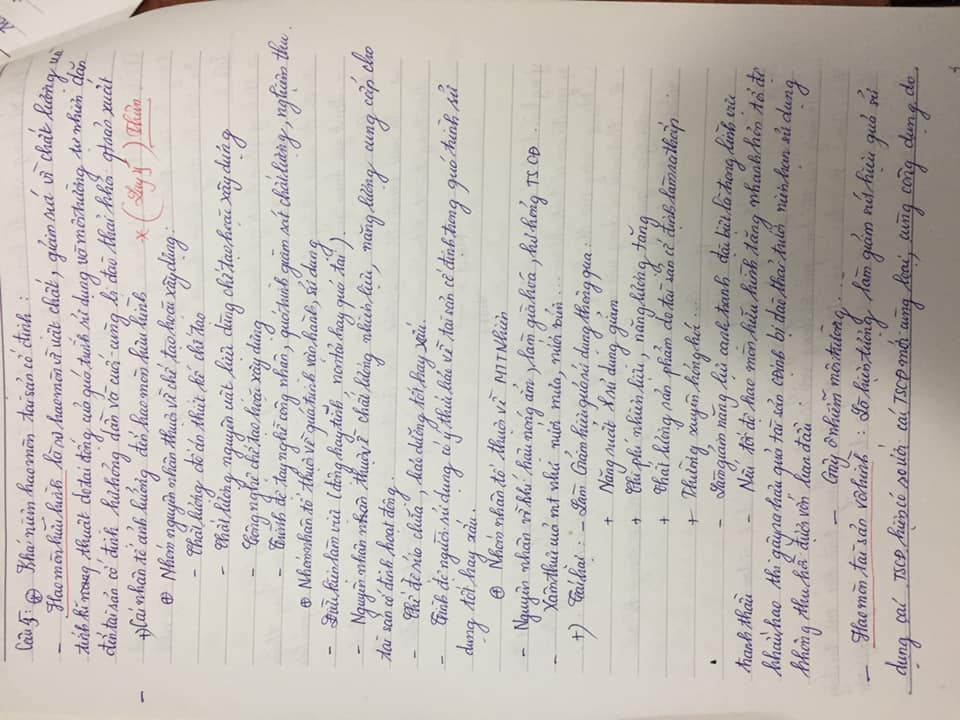 Câu 4: ⊕ Khái niệm hao mòn tài sản cố định:
- Hao mòn hữu hình là sự hao mòn về vật chất, giảm sút về chất lượng và
tính kĩ thuật do tác động của quá trình sử dụng và môi trường tự nhiên dẫn
đến tài sản cố định hư hỏng dần và cuối cùng bị đào thải khỏi qtrao xuất
- +) Các nhân tố ảnh hưởng đến hao mòn hữu hình * (Lấy ý) Thân
⊕ Nhóm nguyên nhân thuộc về chế tạo hoặc xây dựng:
- Chất lượng đồ án thiết kế chế tạo
- Chất lượng nguyên vật liệu dùng chế tạo hoặc xây dựng
- Công nghệ chế tạo hoặc xây dựng
- Trình độ tay nghề công nhân, quá trình giám sát chất lượng, nghiệm thu
⊕ Nhóm nhân tố thuộc về quá trình vận hành, sử dụng
- Điều kiện làm việc (động hay tĩnh non tải hay quá tải).
- Nguyên nhân thuộc về chất lượng nhiên liệu, năng lượng cung cấp cho
tài sản cố định hoạt động.
- Chế độ sửa chữa, bảo dưỡng tốt hay xấu.
- Trình độ người sử dụng và ý thức bảo vệ tài sản cố định trong quá trình sử
dụng tốt hay xấu.
⊕ Nhóm nhân tố thuộc về MT Nhiên
- Nguyên nhân về khí hậu nóng ẩm, làm già hoá, hư hỏng TSCĐ
- Xâm thực của mt như nước mưa, nước mặn...
+) Tác hại: - Làm Giảm hiệu quả sử dụng thông qua:
+ Năng suất sử dụng giảm
+ Chi phí nhiên liệu, năng lượng tăng
+ Chất lượng sản phẩm do tài sản cố định làm ra thấp
+ Thường xuyên hỏng hóc...
- Làm giảm năng lực cạnh tranh đặc biệt là trong lĩnh vực
thanh thầu - Nếu tốc độ hao mòn hữu hình tăng nhanh hơn tốc độ
khấu hao thì gây ra hậu quả tài sản cố định bị đào thải trước niên hạn sử dụng
không thu hồi được vốn ban đầu
- Gây ô nhiễm môi trường.
- Hao mòn tài sản vô hình: Là hiện tượng làm giảm sút hiệu quả sử
dụng các TSCĐ hiện có so với các TSCĐ mới cùng loại, cùng công dụng do